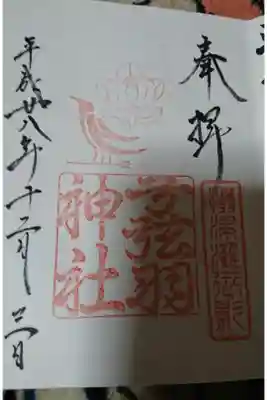 奉拝
弓弦羽
神社
平成廿八年十二月三日